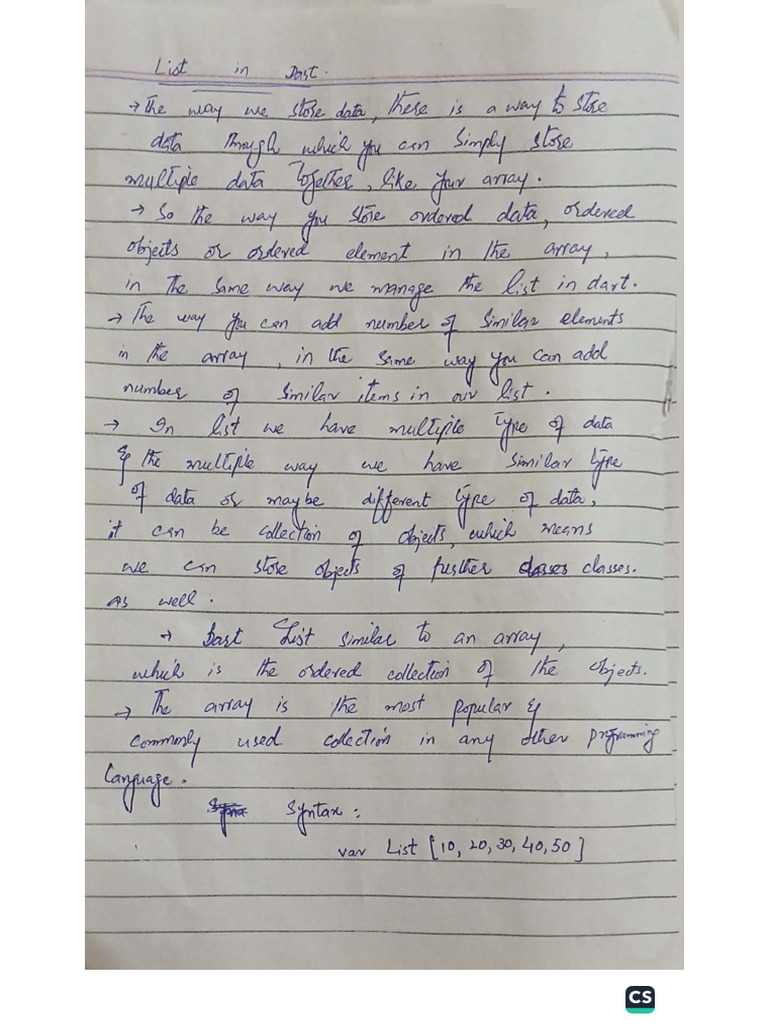 List in Dart.
→ The way we store data, there is a way to store
data through which you can simply store
multiple data together, like your array.
→ So the way you store ordered data, ordered
objects or ordered element in the array,
in the same way we manage the list in dart.
→ The way you can add number of similar elements
in the array, in the same way you can add
number of similar items in our list.
→ In list we have multiple type of data
& the multiple way we have similar type
of data or maybe different type of data,
it can be collection of objects, which means
we can store objects of further classes classes.
As well.
→ Dart List similar to an array,
which is the ordered collection of the objects.
→ The array is the most popular &
commonly used collection in any other programming
language.
Syntax:
var List [10, 20, 30, 40, 50]
CS